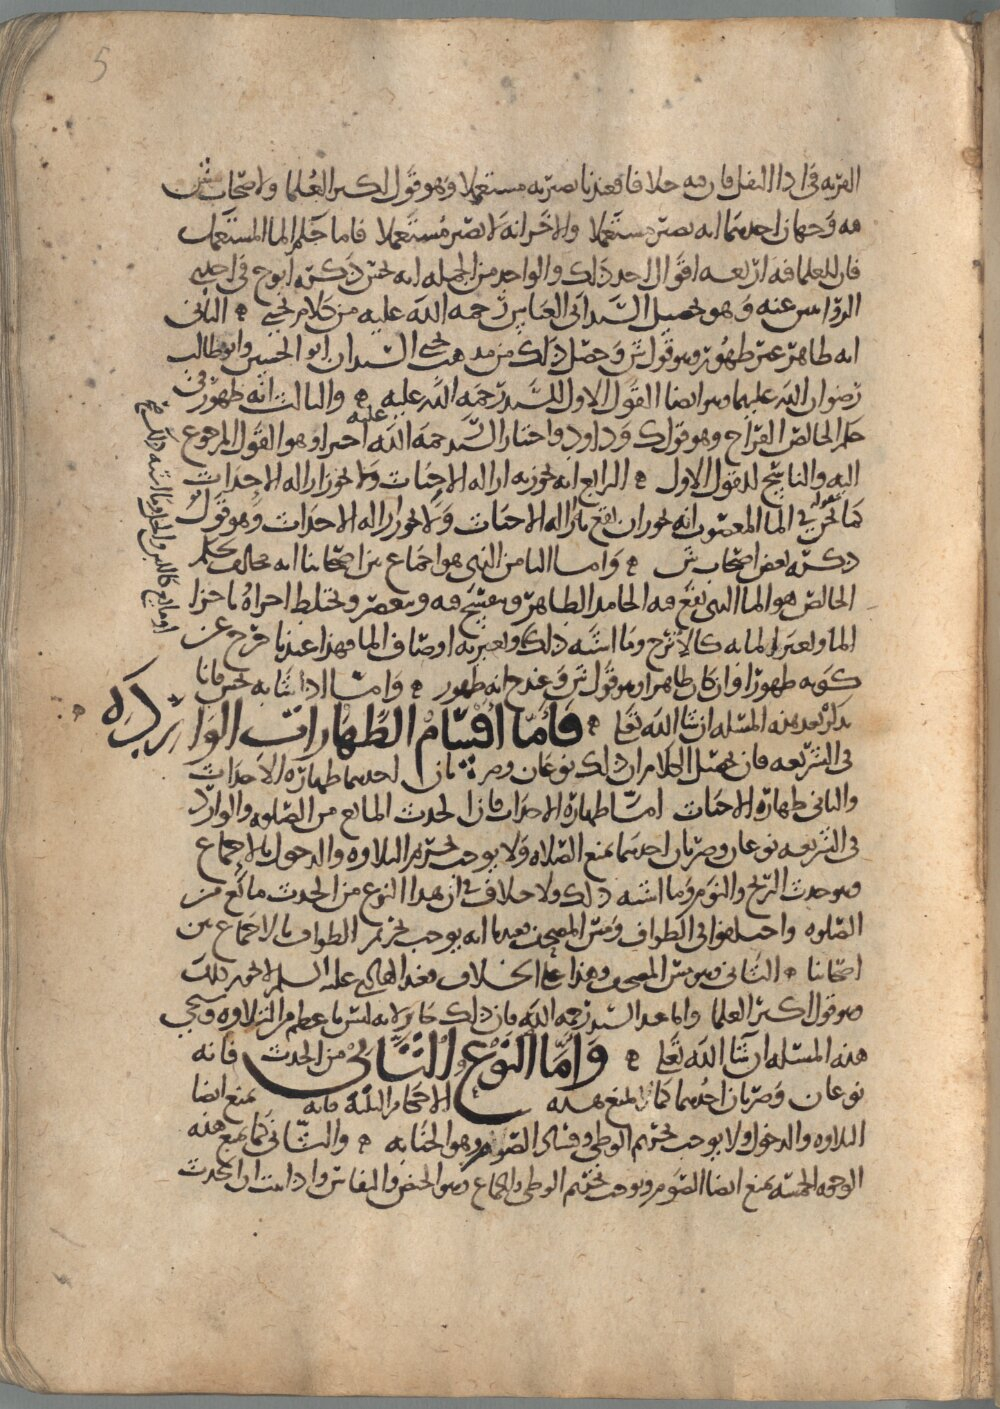 5
القربه فى اداالنفل فان فيه خلافا فعندنا يصير به مستعملا وهو قول اكثر العلما ولاصحاب ش
فيه وجهان احدهما انه يصير مستعملا والاخر انه لا يصير مستعملا فاما حكم الما المستعمل
فان للعلما فيه اربعه اقوال احد ذلك والواحد من الجمله انه نجس ذكره ابو ح فى احدى
الروايتين عنه وهو تحصيل السيد ابى العباس رحمه الله عليه من كلام يحيى الثانى
انه طاهر غير طهور وهو قول ش وحصل ذلك من مذهب يحيى السيدان ابو الحسين وابو طالب
رضوان الله عليهما وهو ايضا القول الاول للسيد رحمه الله عليه والثالث انه طهور فى
حكم الخالص القراح وهو قول ك وداود واختار السيد رحمه الله عليه اخيرا وهو القول المرجوع
اليه والناسخ للقول الاول الرابع انه تجوز به ازاله الانجاس ولا تجوز ازاله الاحداث
كما نحن فى الما المغصوب انه تجوز ان يقع به ازاله الانجاس ولا تجوز ازاله الاحداث وهو قول
ذكره بعض اصحاب ش واما الثامن الذى هو اجماع بين اصحابنا انه مخالف حكم
الخالص هو الما الذى يقع فيه الجامد الطاهر ويتفسخ فيه ويتعصر ويختلط اجزاه باجزا
الما وتغير الما به كالاترج وما اشبه ذلك وتغير به اوصاف الما فهذا عندنا خرج عن
كونه طهورا وان كان طاهرا وهو قول ش وعند ح انه طهور واما اذا شابه نجس فانا
نذكر بعد هذه المسله ان شا الله تعالى فاما اقسام الطهارات الوارده
فى الشريعه فان تحصيل الكلام ان ذلك نوعان وضربان احدهما طهارة الاحداث
والثانى طهارة الانجاس اما طهارة الاحداث فان الحدث المانع من الصلوه والوارد
فى الشريعه نوعان وضربان احدهما يمنع الصلاه ولا يوجب تحريم التلاوه والدخول بالاجماع
وهو حدث الريح والنوم وما اشبه ذلك ولا خلاف فى ان هذا النوع من الحدث مانع من
الصلوه واختلفوا فى الطواف ومس المصحف فعندنا انه يوجب تحريم الطواف بالاجماع بين
اصحابنا الثانى وهو مس المصحف وهذا على الخلاف فعند الهادى عليه السلم لا تحرم ذلك
وهو قول اكثر العلما والى بعد السيد رحمه الله فان ذلك جايز لانه ليس باعظم من التلاوه وتجى
هذه المسله ان شا الله تعالى واما النوع الثانى من الحدث فانه
نوعان وضربان احدهما كما المنع هذه الاحكام الثلثه فانه يمنع ايضا
التلاوه والدخول ولا يوجب تحريم الوطى وفساد الصوم وهو الجنابه والثانى كما يمنع هذه
الوجوه الخمسه يمنع ايضا الصوم ويوجب تحريم الوطى بالاجماع وهو الحيض والنفاس واذا ثبت ان الحدث